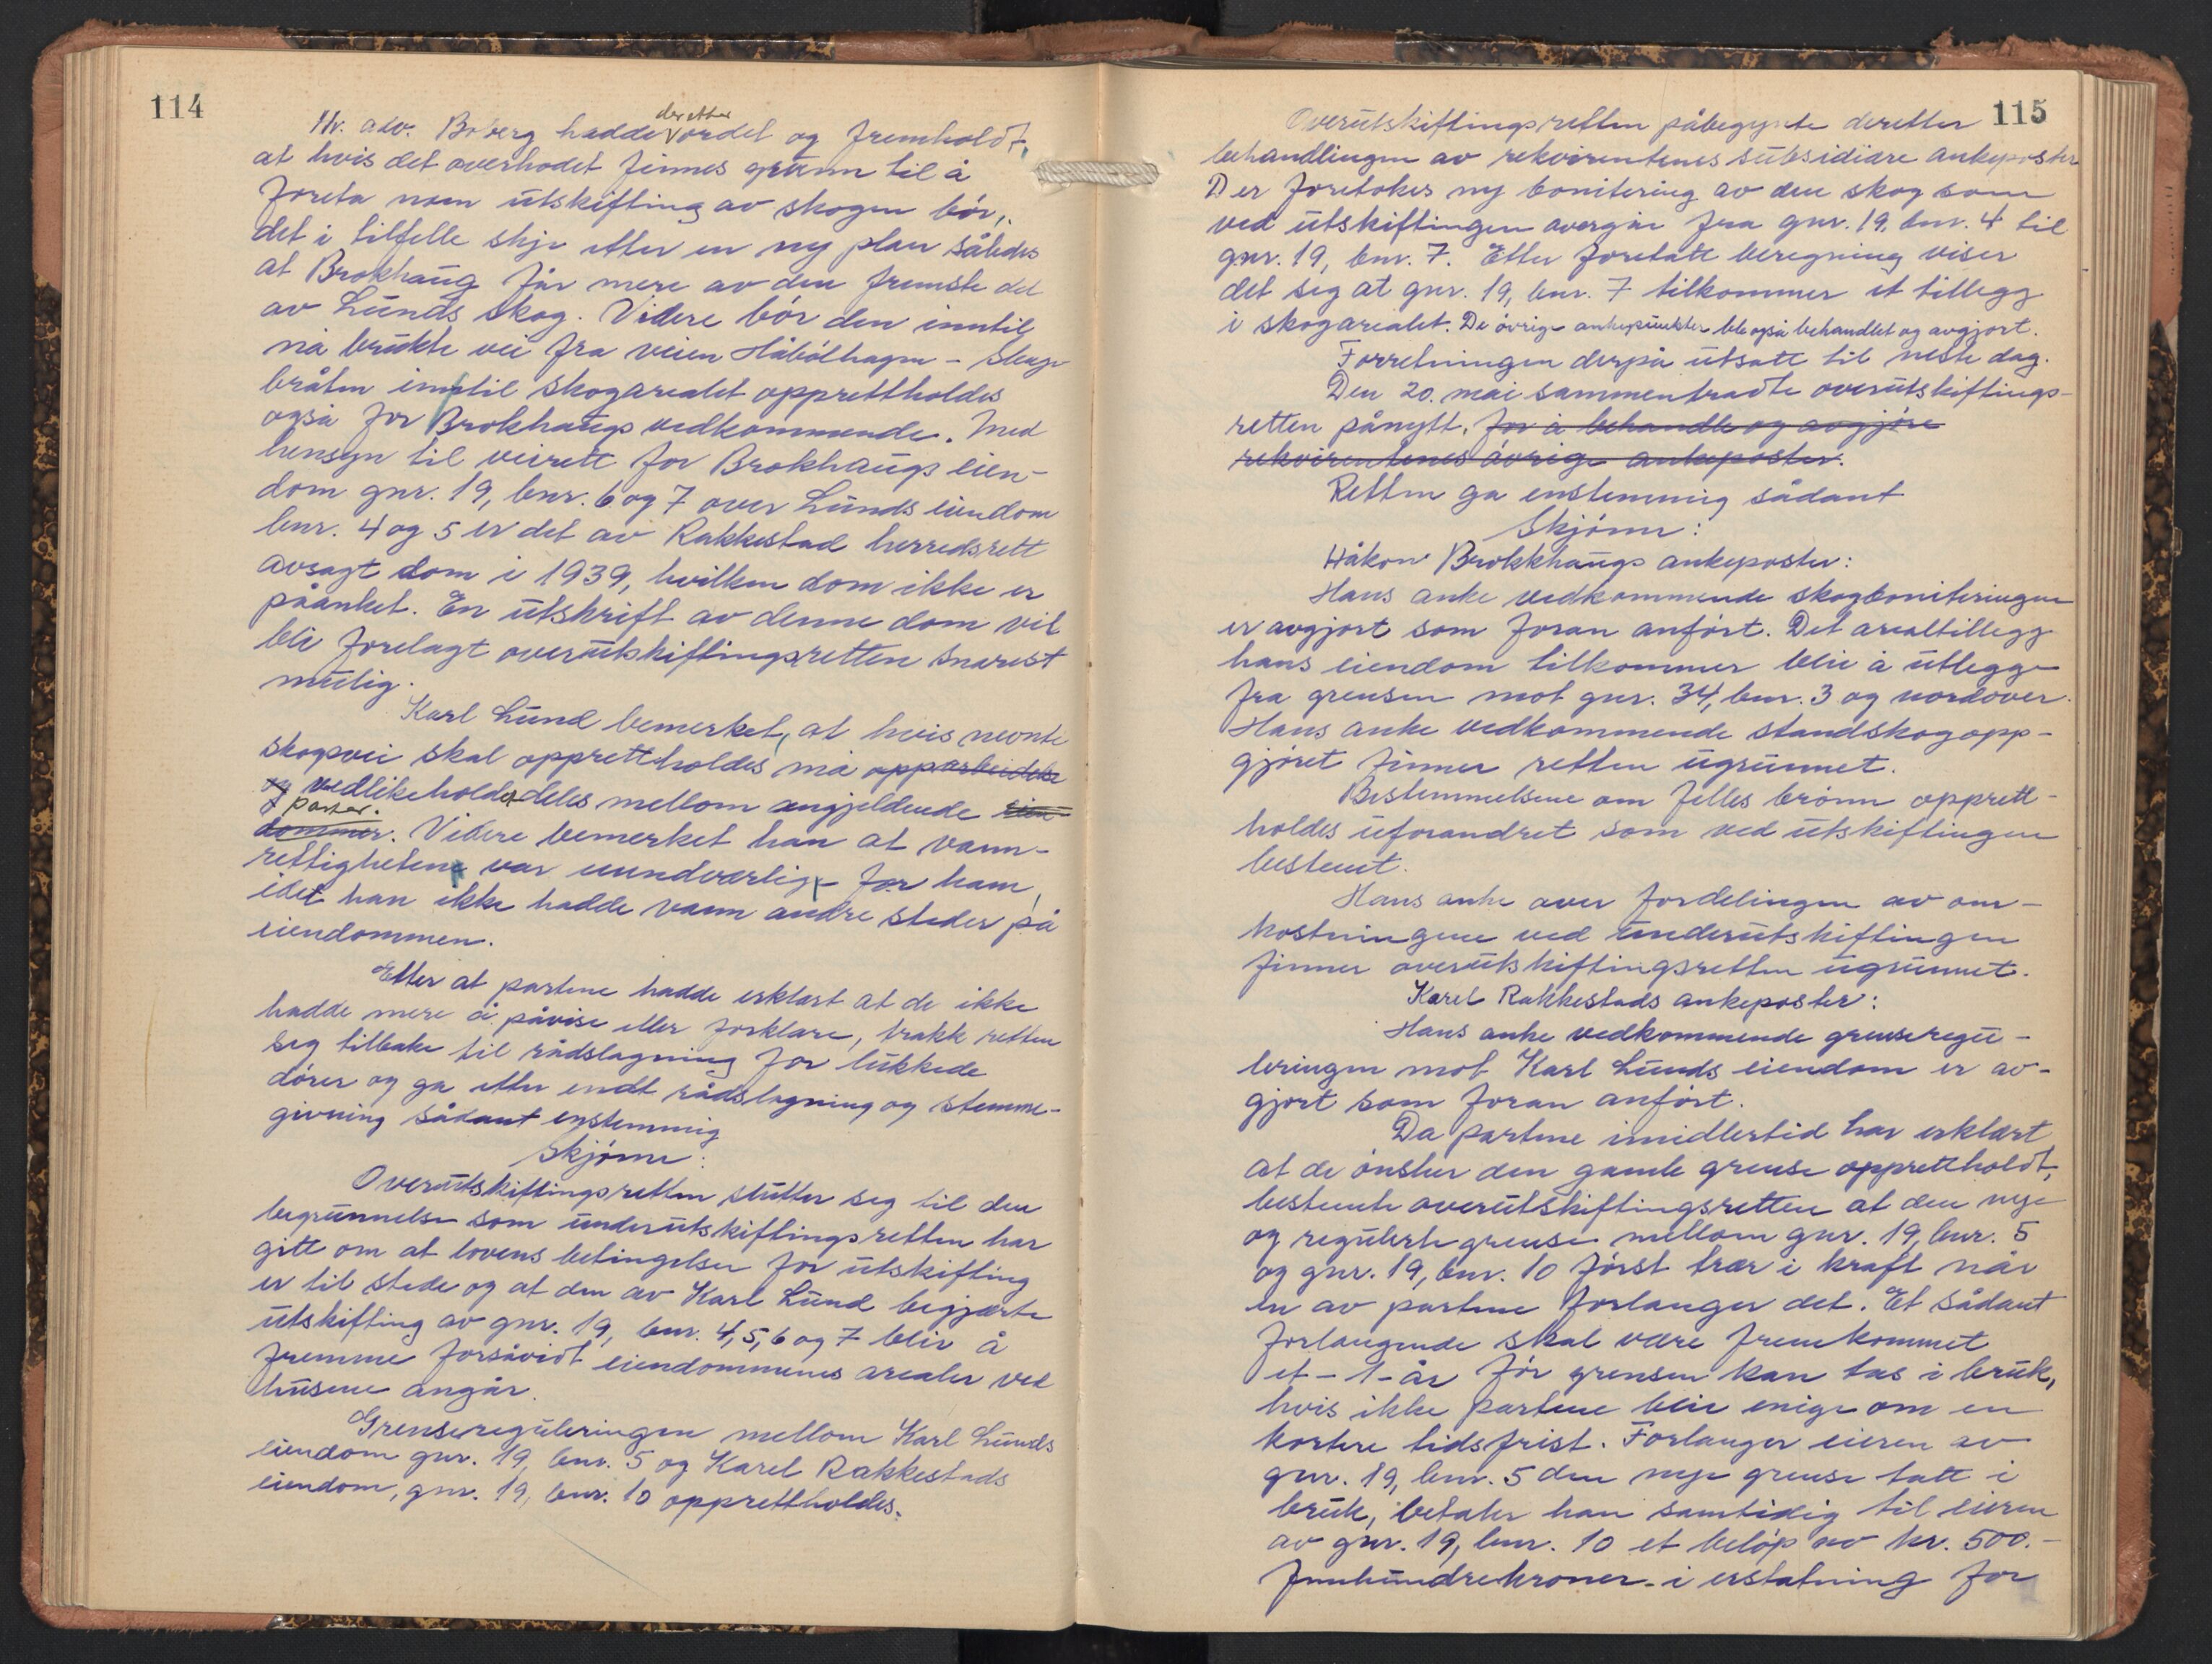 114
Hr. adv. Boberg hadde deretter ordet og fremholdt,
at hvis det overhodet finnes grunn til å
foreta noen utskifting av skogen bör,
det i tilfelle skje etter en ny plan således
at Brokhaug får mere av den fremste del
av Lunds skog. Videre bör den inntil
nå brukte vei fra veien Håbölhagen -
bråten inntil skogarealet opprettholdes
også for Brokhaugs vedkommende. Med
hensyn til veirett for Brokhaugs eien-
dom gnr. 19, bnr. 6 og 7 over Lunds eiendom
bnr. 4 og 5 er det av Rakkestad herredsrett
avsagt dom i 1939, hvilken dom ikke er
påanket. En utskrift av denne dom vil
bli forelagt overutskiftingsretten snarest
mulig.
Karl Lund bemerket, at hvis nevnte
skogsvei skal opprettholdes må opparbeidelse
og vedlikeholdet deles mellom angjeldende eien-
dommer. parter. Videre bemerket han at vann-
rettighetene var uundværlig for ham,
idet han ikke hadde vann andre steder på
eiendommen.
Etter at partene hadde erklært at de ikke
hadde mere å påvise eller forklare, trakk retten
seg tilbake til rådslagning for lukkede
dörer og ga etter endt rådslagning og stemme-
givning sådant enstemmig
Skjönn:
Overutskiftingsretten slutter seg til den
begrunnelse som underutskiftingsretten har
gitt om at lovens betingelser for utskifting
er til stede og at den av Karl Lund begjærte
utskifting av gnr. 19, bnr. 4, 5, 6 og 7 blir å
fremme forsåvidt eiendommenes arealer ved
husene angår.
Grensereguleringen mellom Karl Lunds
eiendom gnr. 19, bnr. 5 og Karel Rakkestads
eiendom, gnr. 19, bnr. 10 opprettholdes.
115
Overutskiftingsretten påbegynte deretter
behandlingen av rekvirentenes subsidiære ankeposter
Der foretokes ny bonitering av den skog som
ved utskiftingen overgår fra gnr. 19, bnr. 4 til
gnr. 19, bnr. 7. Etter foretatt beregning viser
det seg at gnr. 19, bnr. 7 tilkommer et tillegg
i skogarealet. De övrige ankepunkter ble også behandlet og avgjort.
Forretningen derpå utsatt til neste dag.
Den 20. mai sammentrådte overutskiftings-
retten pånytt. for å behandle og avgjöre
rekvirentenes övrige ankeposter.
Retten ga enstemmig sådant
Skjönn:
Håkon Brokkhaugs ankeposter:
Hans anke vedkommende skogboniteringen
er avgjort som foran anfört. Det arealtillegg
hans eiendom tilkommer blir å utlegge
fra grensen mot gnr. 34, bnr. 3 og nordover.
Hans anke vedkommende standskogopp-
gjöret finner retten ugrunnet.
Bestemmelsene om felles brönn opprett-
holdes uforandret som ved utskiftingen
bestemt.
Hans anke over fordelingen av om-
kostningene ved underutskiftingen
finner overutskiftingsretten ugrunnet.
Karel Rakkestads ankeposter:
Hans anke vedkommende grenseregu-
leringen mot Karl Lunds eiendom er av-
gjort som foran anfört.
Da partene imidlertid har erklært
at de önsker den gamle grense opprettholdt,
bestemte overutskiftingsretten at den nye
og regulerte grense mellom gnr. 19, bnr. 5
og gnr. 19, bnr. 10 först trær i kraft når
en av partene forlanger det. Et sådant
forlangende skal være fremkommet
et - 1 - år för grensen kan tas i bruk,
hvis ikke partene blir enige om en
kortere tidsfrist. Forlanger eieren av
gnr. 19, bnr. 5 den nye grense tatt i
bruk, betaler han samtidig til eieren
av gnr. 19, bnr. 10 et belöp av kr. 500.-
femhundrekroner - i erstatning for